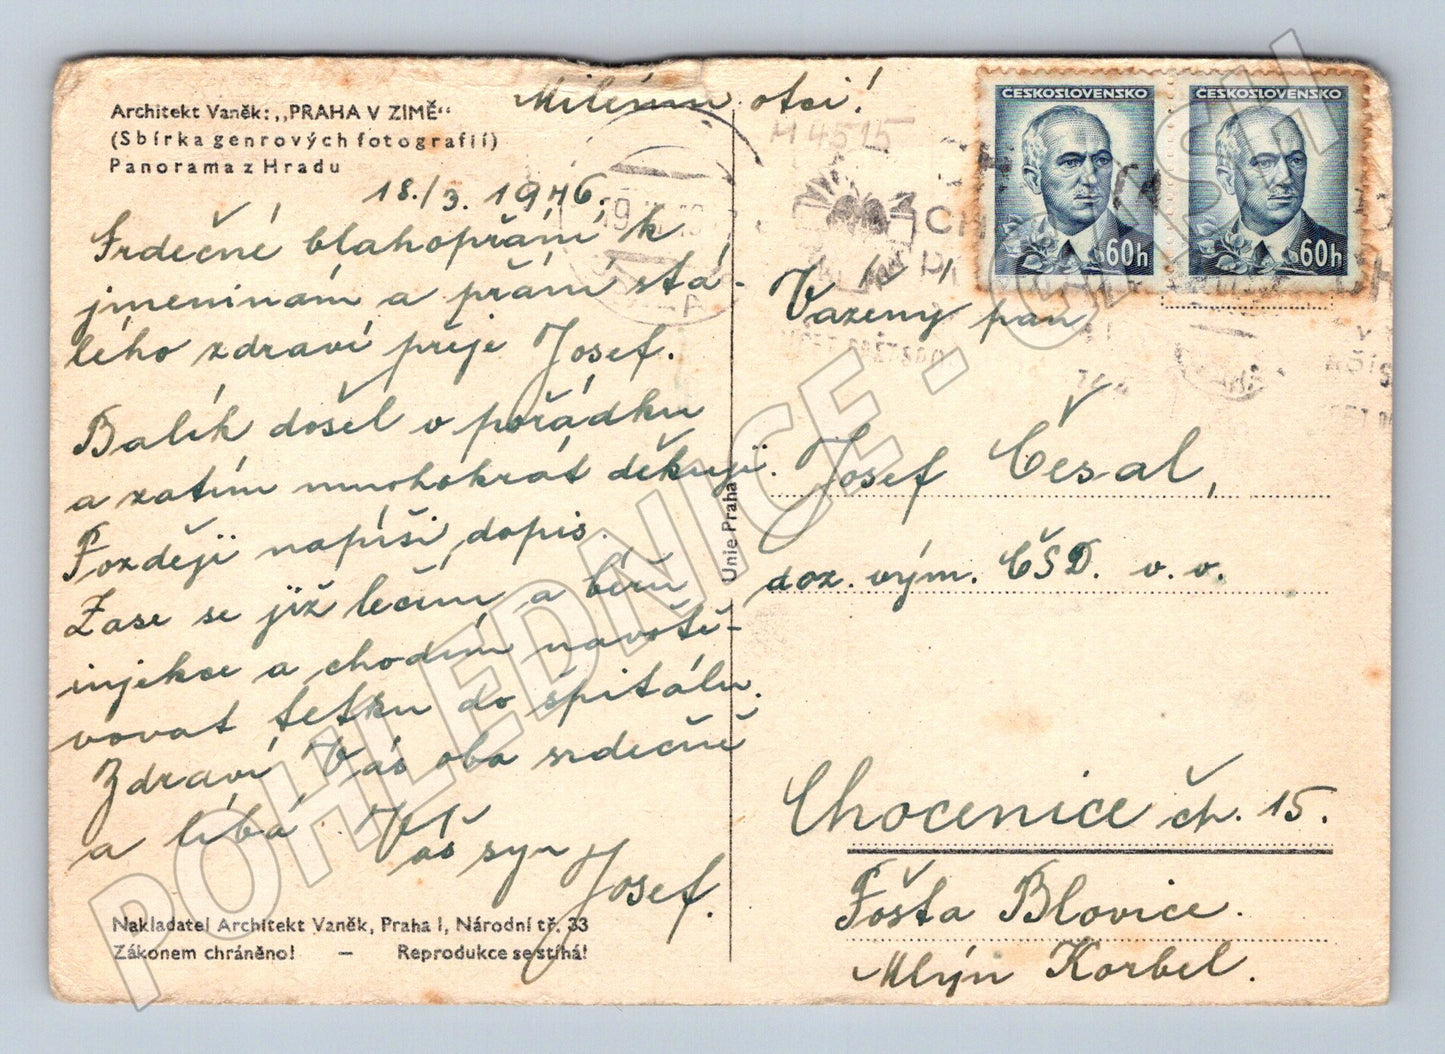 Architekt Vaněk: „PRAHA V ZIMĚ“
(Sbírka genrových fotografií)
Panorama z Hradu
Milému otci!
18./3. 1946.
Srdečné blahopřání k
jmeninám a přání stá-
lého zdraví přeje Josef.
Balík došel v pořádku
a zatím mnohokrát děkuji.
Později napíši dopis.
Zase se již léčím, a béřu
injekce a chodím navště-
vovat tetku do špitálu.
Zdraví Vás oba srdečně
a líbá Váš syn
Josef.
Nakladatel Architekt Vaněk, Praha I, Národní tř. 33
Zákonem chráněno! — Reprodukce se stíhá!
Unie Praha
ČESKOSLOVENSKO
60h
ČESKOSLOVENSKO
60h
H4515
Vážený pan
Josef Česal,
doz. vým. ČSD. v. v.
Chocenice čp. 15.
Pošta Blovice.
Mlýn Korbel.
POHLEDNICE - CHASH